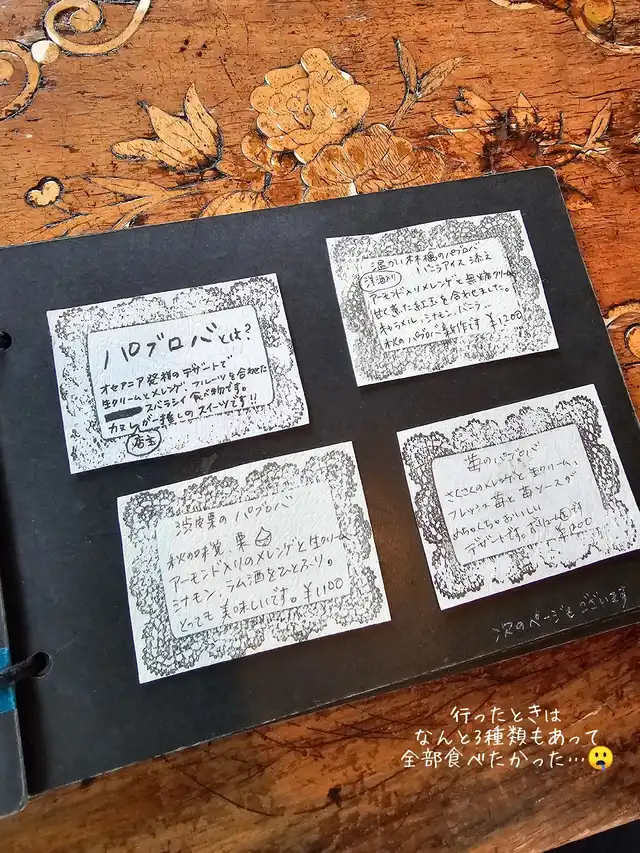 パブロバとは?
オセアニア発祥のデザートで
生クリームとメレンゲ、フルーツを合わせた
スバラシイ食べ物です。
カマしが一推しのスイーツです!!
店主
温かい林檎のパブロバ
バニラアイス添え
洋酒入り
アーモンド入りメレンゲと無糖クリーム
甘く煮た紅玉を合わせました。
キャラメル、シナモン、バニラ
秋のパブロバ新作です ¥1200
渋皮栗のパブロバ
秋の味覚、栗
アーモンド入りのメレンゲと生クリーム
シナモン、ラム酒をひとふり。
とっても美味しいです。¥1,100
苺のパブロバ
さくさくのメレンゲと生クリーム、
フレッシュ苺と苺ソースが
めちゃくちゃおいしい
デザートです。
¥1200
次のページもございます
行ったときは
なんと3種類もあって
全部食べたかった…😮